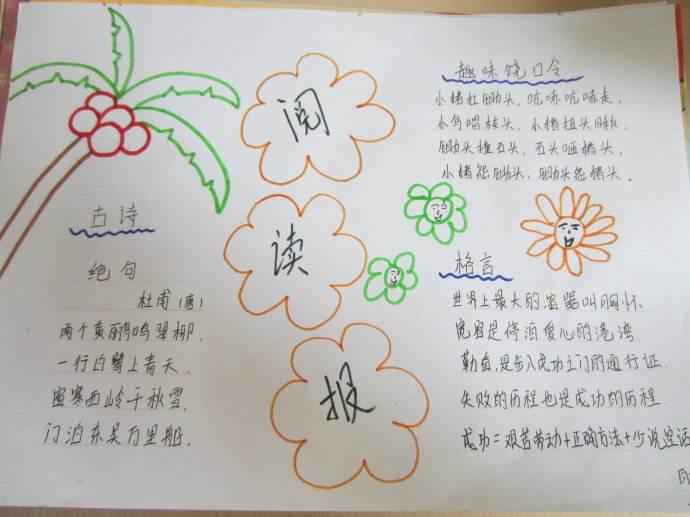 阅
读
报
古诗
绝句
杜甫(唐)
两个黄鹂鸣翠柳.
一行白鹭上青天.
窗寒西岭千秋雪.
门泊东吴万里船.
趣味饶口令
小猪扛锄头，吭哧吭哧走。
小鸟唱枝头，小猪扭头瞅，
锄头撞石头，石头砸猪头。
小猪怨锄头，锄头怨猪头。
格言
世界上最大的容器叫胸怀
宽容是停泊爱心的港湾
勤奋，是步入成功之门的通行证
失败的历程也是成功的历程
成功=艰苦劳动+正确方法+少说空话